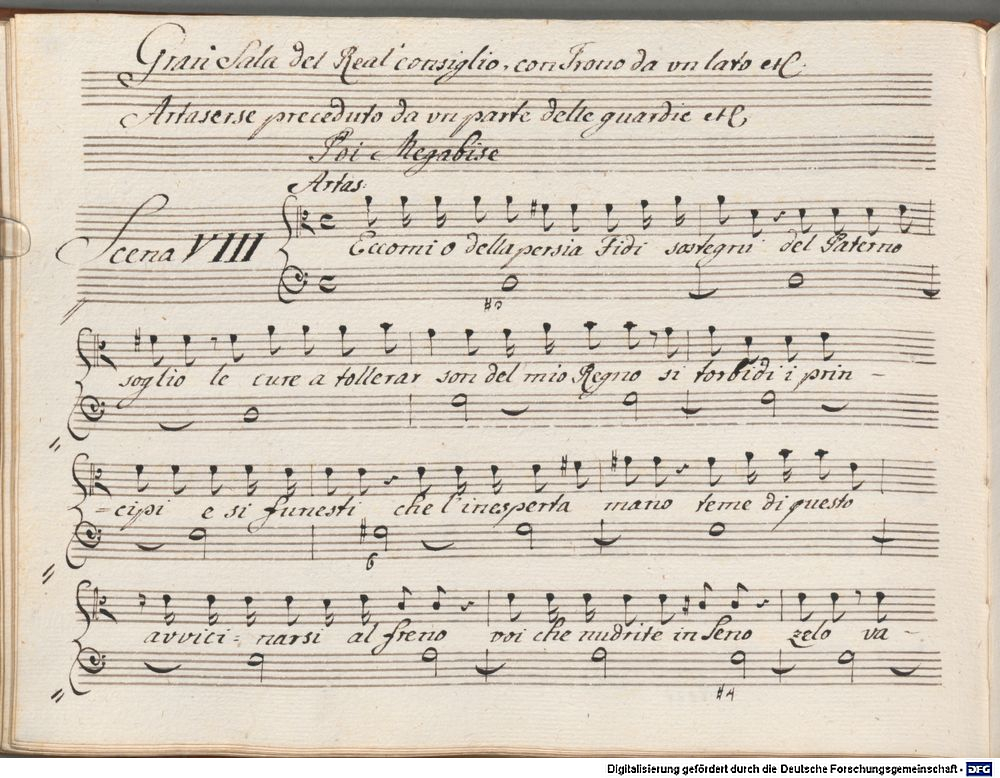 Gran Sala del Real consiglio, con Trono da un lato etc.
Artaserse preceduto da un parte delle guardie etc
Poi Megabise
Artas:
Scena VIII
Eccomi o della persia Fidi sostegni del Paterno
#6
soglio le cure a tollerar son del mio Regno si torbidi i prin-
-cipi e si funesti che l'inesperta mano teme di questo
6
avvici-narsi al freno voi che nudrite in seno zelo va-
#4
Digitalisierung gefördert durch die Deutsche Forschungsgemeinschaft - DFG